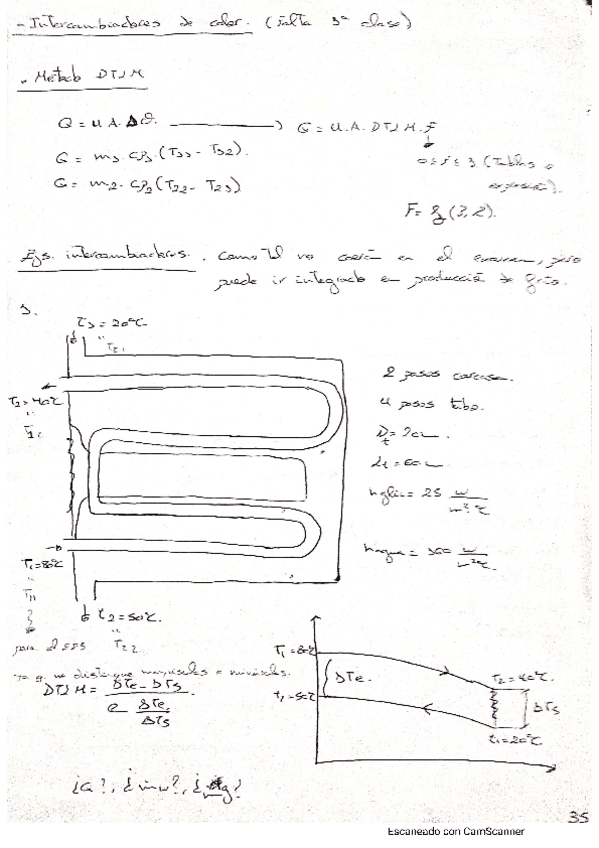 - Intercambiadores de calor. (falta 1ª clase)
. Metodo DTLM
Q = U.A.Δθ. ⟶ Q = U.A.DTLM.F
Q = m1.cp1.(T11 - T12).
0 ≤ F ≤ 1 (Tablas o
Q = m2.cp2(T22 - T21)
F = f(P,R).
Ejs. intercambiadores. Como tal no caerá en el examen, pero
puede ir integrado en producción de frío.
1.
t1 = 20ºC
T21
T2 = 40ºC
T12
T1 = 80ºC
T11
t2 = 50ºC.
T22
2 pasos carcasa.
4 pasos tubo.
Dt = 2cm.
Lt = 60m
hglic = 25 W/m²ºC
hagua = 160 W/m²ºC.
para el EES
ya q. no distingue mayúsculas o minúsculas.
DTLM = (ΔTe - ΔTs)/(ln ΔTe/ΔTs).
T1 = 80ºC
ΔTe.
t2 = 50ºC
T2 = 40ºC.
ΔTs
t1 = 20ºC
¿Q?, ¿mw?, ¿mg?
35
Escaneado con CamScanner